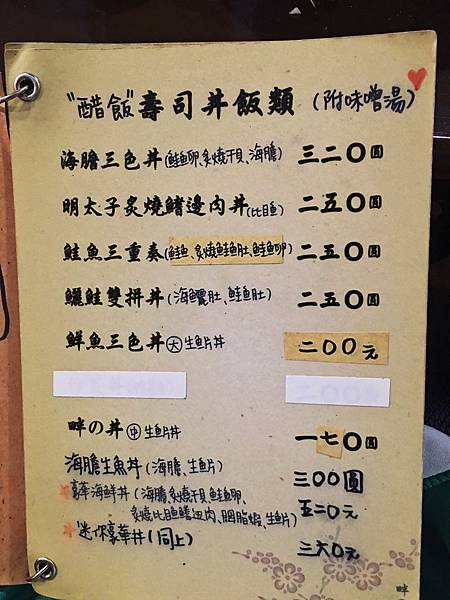 "醋飯"壽司丼飯類 (附味噌湯)
海膽三色丼(鮭魚卵、炙燒干貝、海膽) 三二〇圓
明太子炙燒鰭邊肉丼(比目魚) 二五〇圓
鮭魚三重奏(鮭魚、炙燒鮭魚肚、鮭魚卵) 二五〇圓
鱺鮭雙拼丼(海鱺肚、鮭魚肚) 二五〇圓
鮮魚三色丼 大 生魚片丼 二〇〇元
畔の丼 中 生魚片丼 一七〇圓
海膽生魚丼(海膽、生魚片) 三〇〇圓
*豪華海鮮丼(海膽、炙燒干貝、鮭魚卵、
炙燒比目魚鰭邊肉、胭脂蝦、生魚片) 五二〇元
*迷你豪華丼(同上) 三六〇元
畔